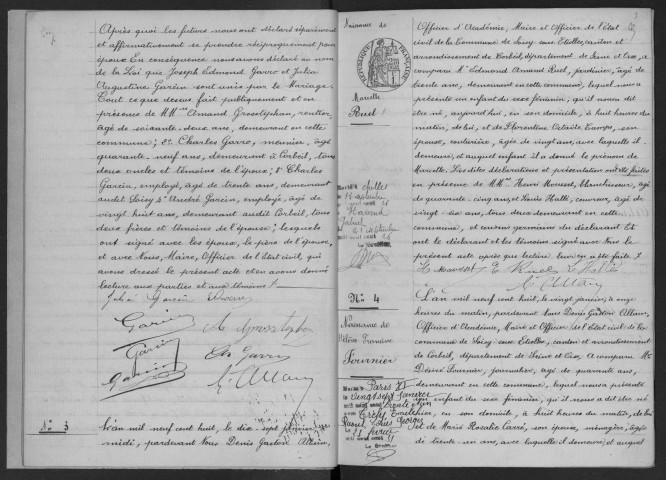 Après quoi les futurs nous ont déclaré séparément
et affirmativement se prendre réciproquement pour
époux. En conséquence nous avons déclaré au nom
de la Loi que Joseph Edmond Garro et Julia
Augustine Garcin sont unis par le Mariage.
Tout ce que dessus fait publiquement et en
présence de MM. Armand rentier,
âgé de soixante-deux ans, demeurant en cette
commune; 2° Charles Garro, meunier, âgé
quarante-neuf ans, demeurant à Corbeil, tous
deux oncles et témoins de l'époux; 3° Charles
Garcin, employé, âgé de trente ans, demeurant
audit Soisy 4° André Garcin, employé, âgé de
vingt huit ans, demeurant audit Corbeil, tous
deux frères et témoins de l'épouse; lesquels
ont signé avec les époux, le père de l'épouse,
et avec Nous, Maire, Officier de l'état civil, qui
avons dressé le présent acte et en avons donné
lecture aux parties et aux témoins.
Julia Garcin
Garcin
Garcin
Ch. Garro
Garcin
G. Allain
N° 3
L'an mil neuf cent huit, le dix sept janvier
midi, pardevant Nous Denis Gaston Allain,
Naissance de
RÉPUBLIQUE FRANÇAISE
Marcelle
Ruel
Officier d'Académie, Maire et Officier de l'état
civil de la Commune de Soisy-sous-Etiolles, canton et
arrondissement de Corbeil, département de Seine et Oise, a
comparu M. Edmond Armand Ruel, jardinier, âgé de
trente ans, demeurant en cette commune, lequel nous a
présenté un enfant du sexe féminin, qu'il nous a dit
être né, aujourd'hui, en son domicile, à huit heures du
matin, de lui, et de Florentine Octavie son
épouse, couturière, âgée de vingt ans, avec laquelle il
demeure, et auquel enfant il a donné le prénom de
Marcelle. Les dites déclaration et présentation ont été faites
en présence de MM. Henri Mousset, blanchisseur, âgé
de quarante-cinq ans, et Louis Halle, couvreur, âgé de
vingt-six ans, tous deux demeurant en cette
commune, et cousins germains du déclarant. Et
ont le déclarant et les témoins signé avec Nous le
présent acte après que lecture leur en a été faite.
H. Mousset E. Ruel L. Halle
G. Allain
N° 4
Naissance de
Fournier
L'an mil neuf cent huit, le vingt janvier, à onze
heures du matin, pardevant Nous Denis Gaston Allain,
Officier d'Académie, Maire et Officier de l'état civil de la Commune
de Soisy-sous-Etiolles, canton et arrondissement
de Corbeil, département de Seine et Oise, a comparu M.
Désiré Fournier, journalier, âgé de quarante ans,
demeurant en cette commune, lequel nous a présenté
un enfant du sexe féminin, qu'il nous a dit être né
en son domicile, à huit heures du matin, de lui
et de Marie Rosalie Carré, son épouse, ménagère, âgée
de trente-un ans, avec laquelle il demeure, et auquel
Paris
vingt sept janvier